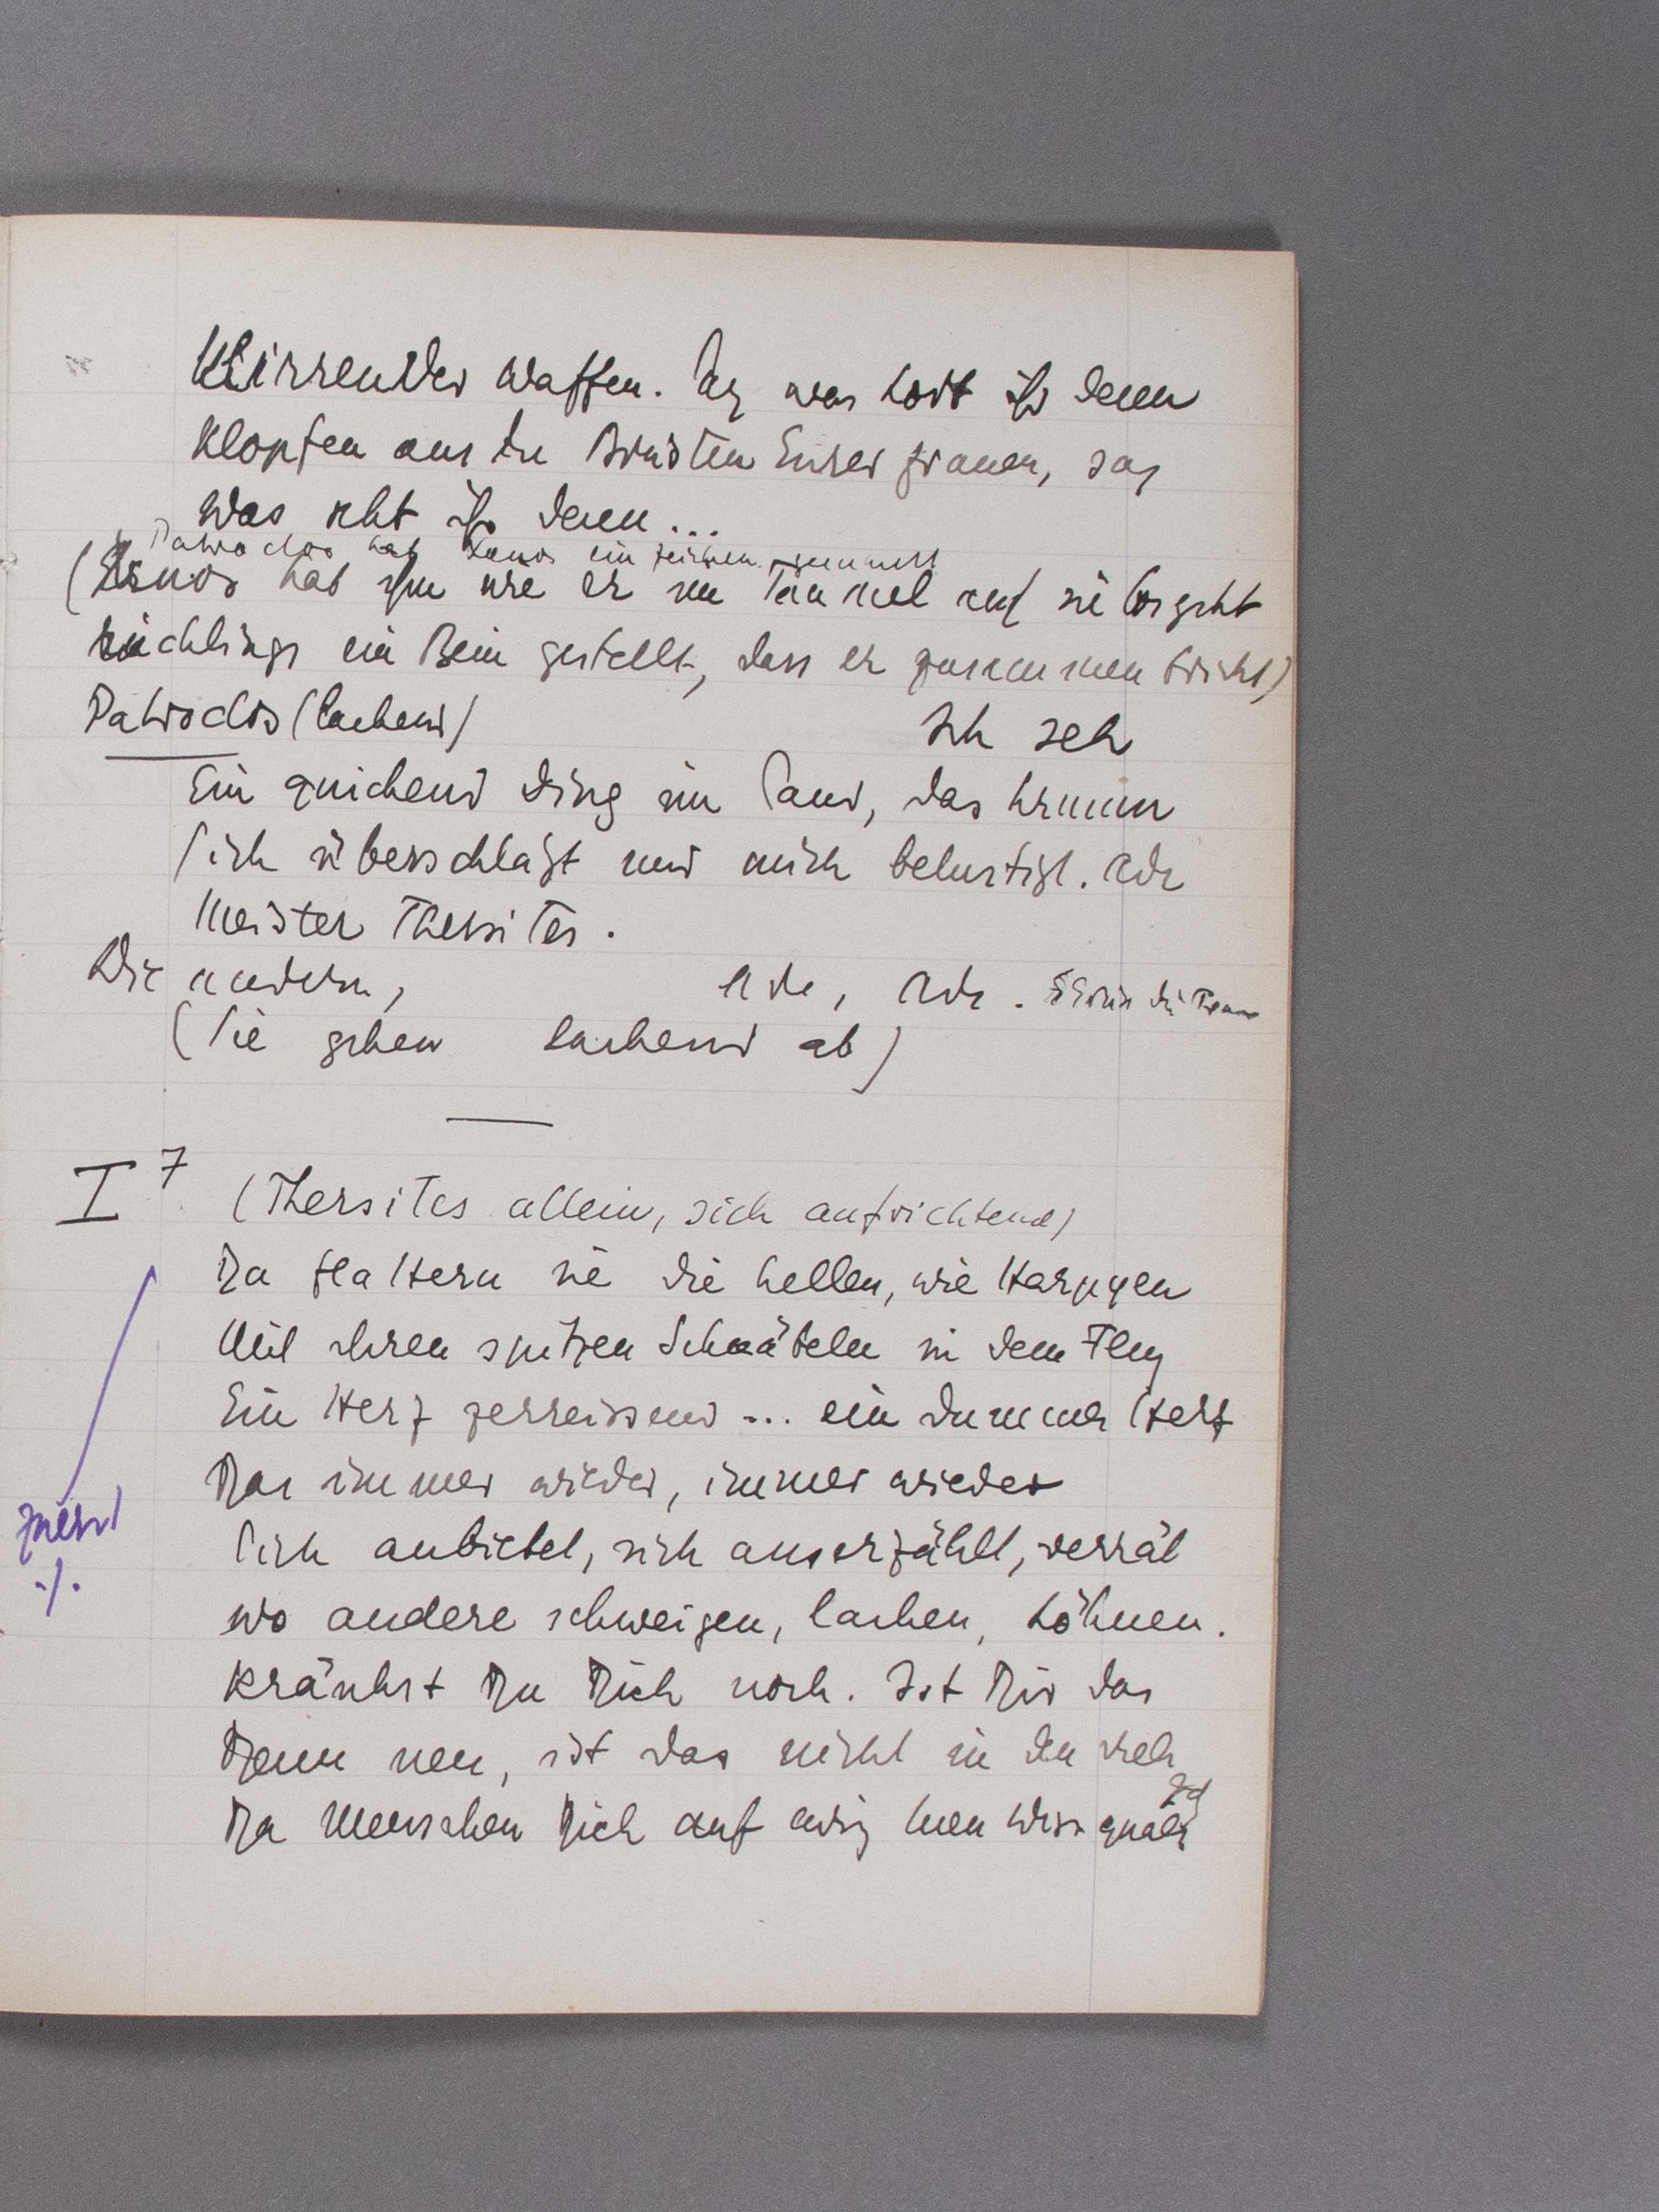 Klirrender Waffen. Sag was hört ihr denn
Klopfen aus den Brüsten Eurer Frauen, sag
Was seht ihr denn...
Patroclos hat Xenos ein Zeichen gemacht
(Xenos hat ihm wie er im Taumel auf sie losgeht
rücklings ein Bein gestellt, dass er zusammen bricht)
Patroclos (lachend)
Ich seh
Ein quickend Ding im Sand, das krumm
Sich überschlägt und mich belustigt. Ade
Meister Thersites.
Die andern,
Ade, Ade.
(Sie gehen lachend ab)
I 7
(Thersites allein, sich aufrichtend)
Da flattern sie die hellen, wie Harpyen
Mit ihren spitzen Schnäbeln in dem Flug
Ein Herz zerreissend... ein dummes Herz
Das immer wieder, immer wieder
Sich anbietet, sich auserzählt, verrät
wo andere schweigen, lachen, höhnen.
Kränkst Du Dich noch. Ist Dir das
Denn neu, ist das nicht in der Welt
Der Menschen Dich auf ewig